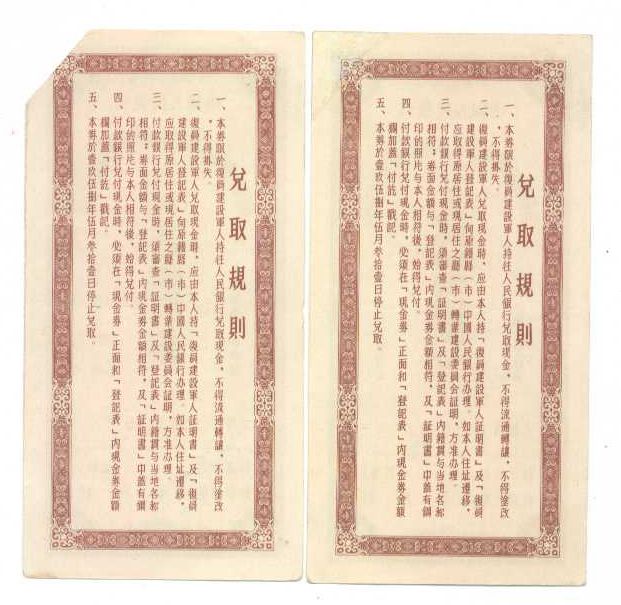 兌取規則
一、本券限於復員建設軍人持往人民銀行兌取現金，不得流通轉讓，不得塗改
，不得掛失。
二、復員建設軍人兌取現金時，应由本人持「復員建設軍人証明書」及「復員
建設軍人登記表」向原籍縣（市）中國人民銀行办理。如本人住址遷移，
应取得原居住或現居住之縣（市）轉業建設委員会証明，方准办理。
三、付款銀行兌付現金時，須審查「証明書」及「登記表」內籍貫与当地名称
相符；券面金額与「登記表」內現金券金額相符，及「証明書」中蓋有鋼
印的照片与本人相符後，始得兌付。
四、付款銀行兌付現金時，必須在「現金券」正面和「登記表」內現金券金額
欄加蓋「付訖」戳記。
五、本券於壹玖伍捌年伍月叁拾壹日停止兌取。
兌取規則
一、本券限於復員建設軍人持往人民銀行兌取現金，不得流通轉讓，不得塗改
，不得掛失。
二、復員建設軍人兌取現金時，应由本人持「復員建設軍人証明書」及「復員
建設軍人登記表」向原籍縣（市）中國人民銀行办理。如本人住址遷移，
应取得原居住或現居住之縣（市）轉業建設委員会証明，方准办理。
三、付款銀行兌付現金時，須審查「証明書」及「登記表」內籍貫与当地名称
相符；券面金額与「登記表」內現金券金額相符，及「証明書」中蓋有鋼
印的照片与本人相符後，始得兌付。
四、付款銀行兌付現金時，必須在「現金券」正面和「登記表」內現金券金額
欄加蓋「付訖」戳記。
五、本券於壹玖伍捌年伍月叁拾壹日停止兌取。